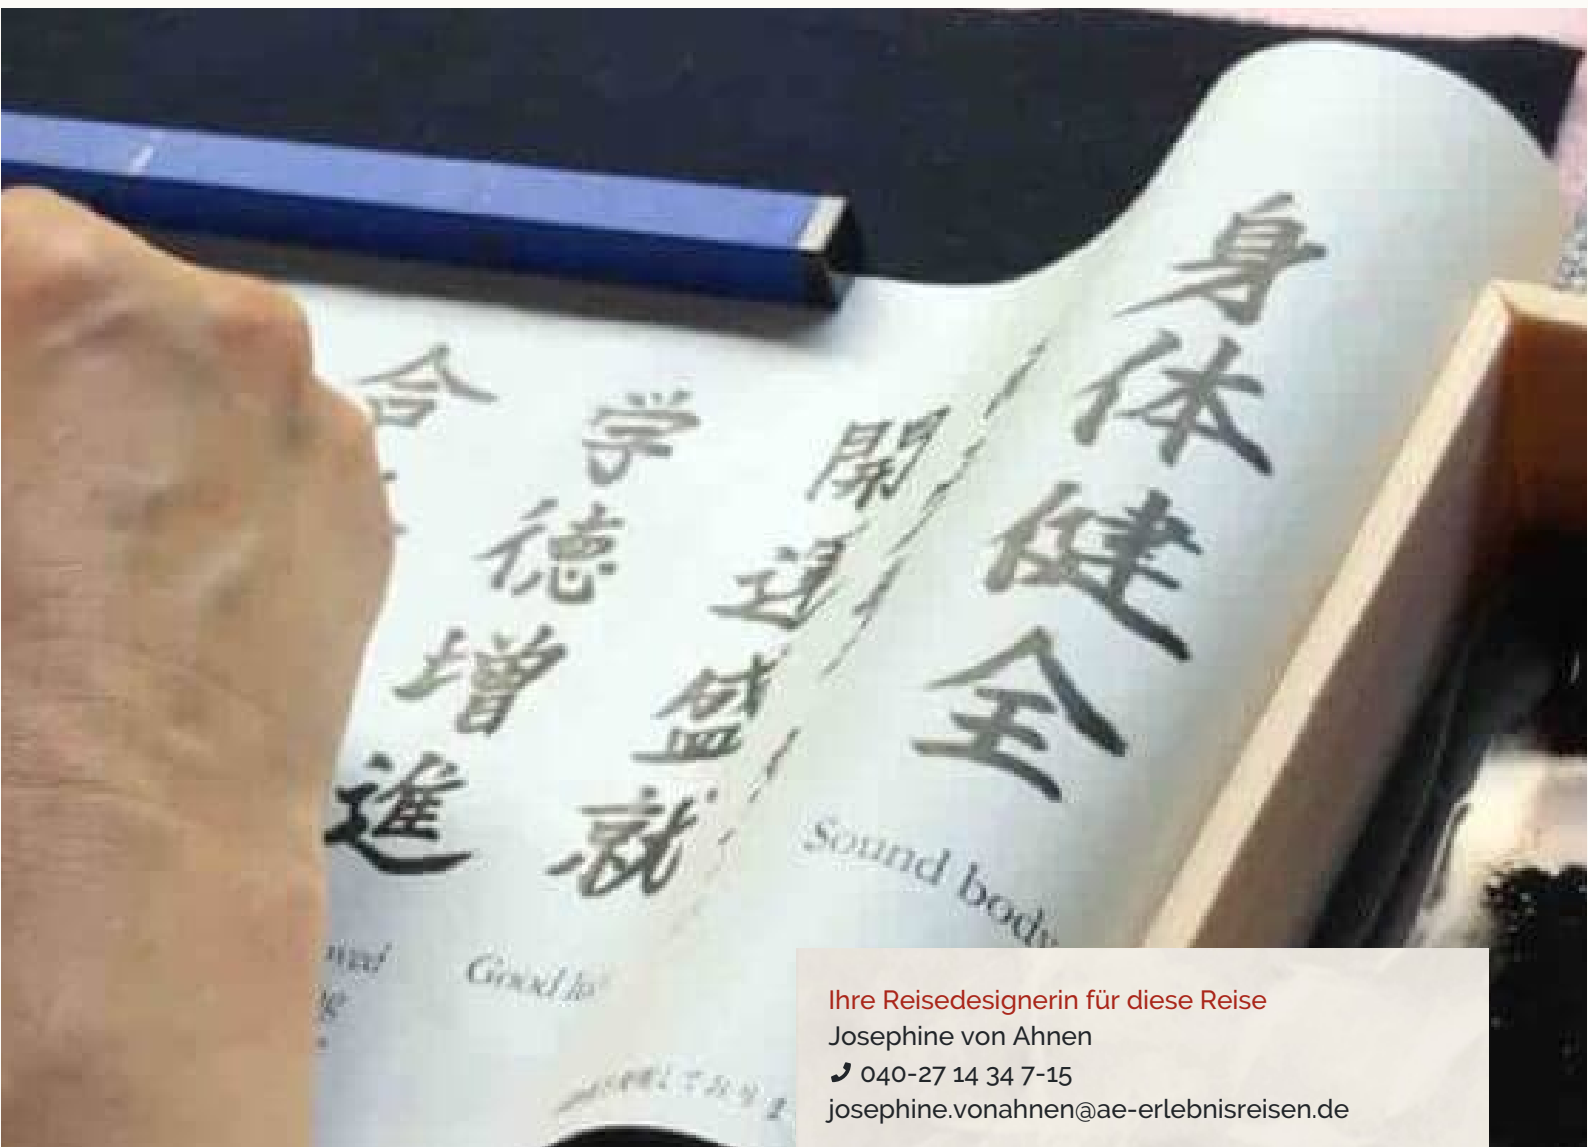 身体健全
開運盛就
学徳増進
合
Sound body
Good
Ihre Reisedesignerin für diese Reise
Josephine von Ahnen
040-27 14 34 7-15
josephine.vonahnen@ae-erlebnisreisen.de